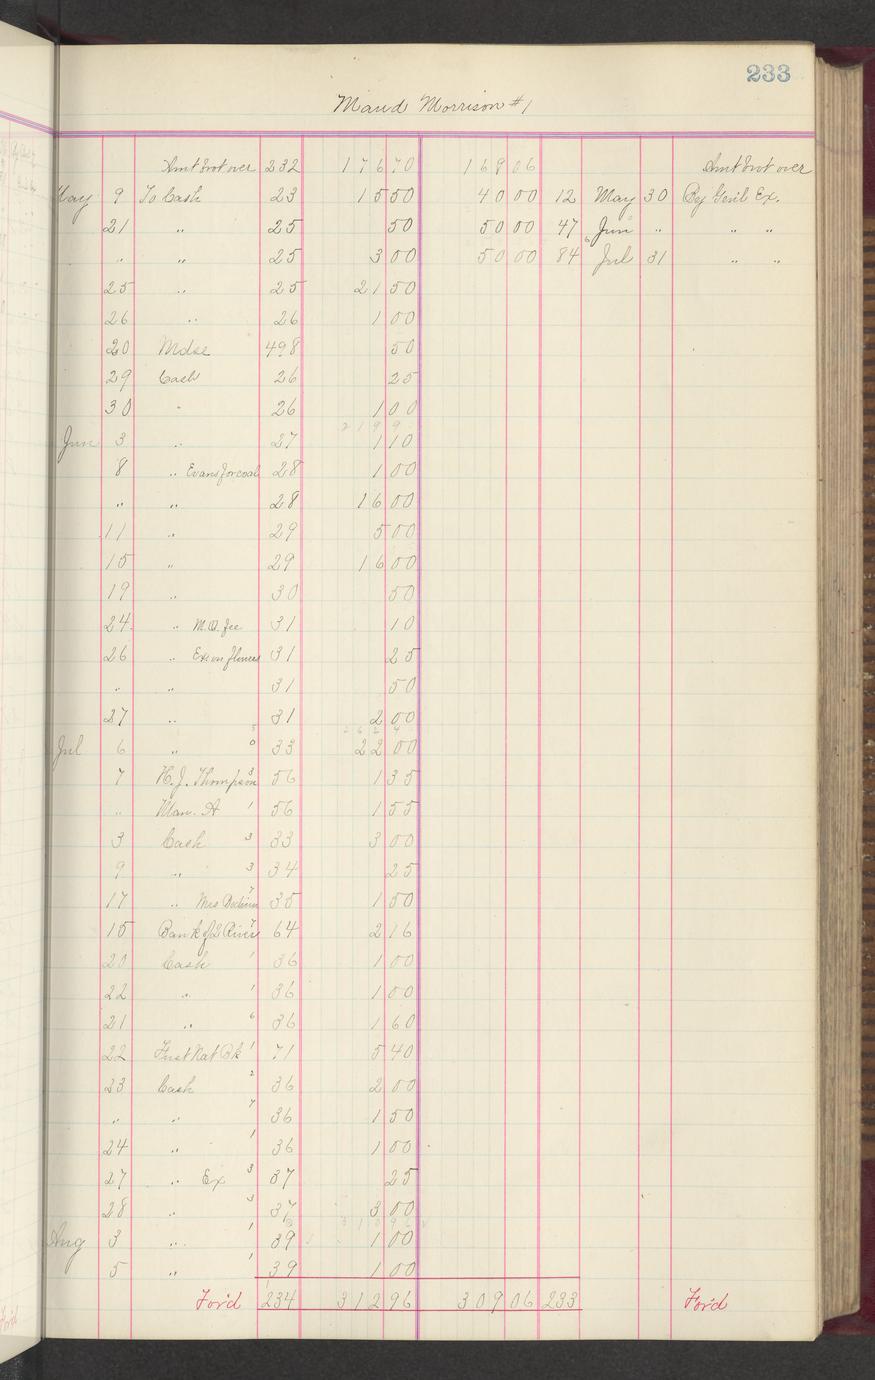 233
Maud Morrison #1
Amt brot over 232 176 70 169 06 Amt brot over
May 9 To Cash 23 15 50 40 00 12 May 30 By Genl Ex.
21 " 25 50 50 00 47 Jun " " "
" " 25 3 00 50 00 84 Jul 31 " "
25 " 25 21 50
26 " 26 1 00
20 Mdse 498 50
29 Cash 26 25
30 " 26 1 00
Jun 3 " 27 1 10
8 " Evans for coal 28 1 00
" " 28 16 00
11 " 29 5 00
15 " 29 16 00
19 " 30 50
24 " M.O. fee 31 10
26 " Ex on flowers 31 25
" " 31 50
27 " 31 2 00
Jul 6 " 33 22 00
7 H. J. Thompson 3 56 1 35
" Man. A 1 56 1 55
3 Cash 3 33 3 00
9 " 3 34 25
17 " Mrs 7 35 1 50
15 Bank of 2 Rivers 7 64 2 16
20 Cash 1 36 1 00
22 " 1 36 1 00
21 " 6 36 1 60
22 First Nat Bk 1 71 5 40
23 Cash 2 36 2 00
" " 7 36 1 50
24 " 1 36 1 00
27 " Ex 3 37 25
28 " 3 37 3 00
Aug 3 " 1 39 1 00
5 " 1 39 1 00
For'd 234 312 96 309 06 233 For'd